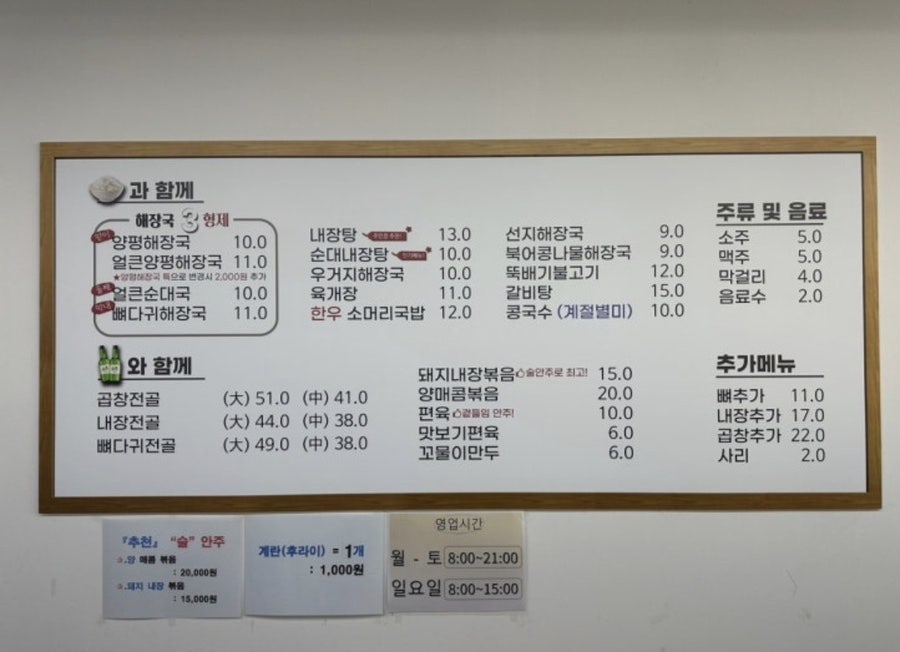 과 함께
해장국 3형제
맏이
양평해장국 10.0
얼큰양평해장국 11.0
★양평해장국 특으로 변경시 2,000원 추가
둘째
얼큰순대국 10.0
막내
뼈다귀해장국 11.0
내장탕 13.0
순대내장탕 인기메뉴! 10.0
우거지해장국 10.0
육개장 11.0
한우 소머리국밥 12.0
선지해장국 9.0
북어콩나물해장국 9.0
뚝배기불고기 12.0
갈비탕 15.0
콩국수 (계절별미) 10.0
주류 및 음료
소주 5.0
맥주 5.0
막걸리 4.0
음료수 2.0
와 함께
곱창전골 (大) 51.0 (中) 41.0
내장전골 (大) 44.0 (中) 38.0
뼈다귀전골 (大) 49.0 (中) 38.0
돼지내장볶음 술안주로 최고! 15.0
양매콤볶음 20.0
편육 곁들임 안주! 10.0
맛보기편육 6.0
꼬물이만두 6.0
추가메뉴
뼈추가 11.0
내장추가 17.0
곱창추가 22.0
사리 2.0
『추천』 "술" 안주
☆.양 매콤 볶음
: 20,000원
☆.돼지 내장 볶음
: 15,000원
계란(후라이) = 1개
: 1,000원
영업시간
월 - 토 8:00~21:00
일요일 8:00~15:00